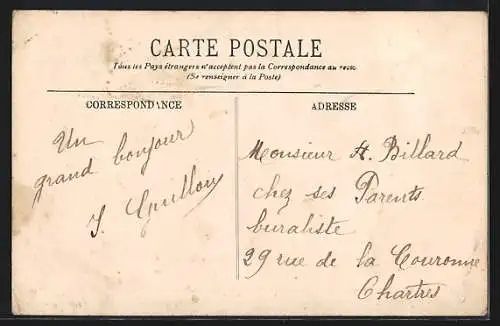 CARTE POSTALE
Tous les Pays étrangers n'acceptent pas la Correspondance au recto
(Se renseigner à la Poste)
CORRESPONDANCE
Un
grand bonjour
ADRESSE
Monsieur A. Billard
chez ses Parents
buraliste
29 rue de la Couronne
Chartres